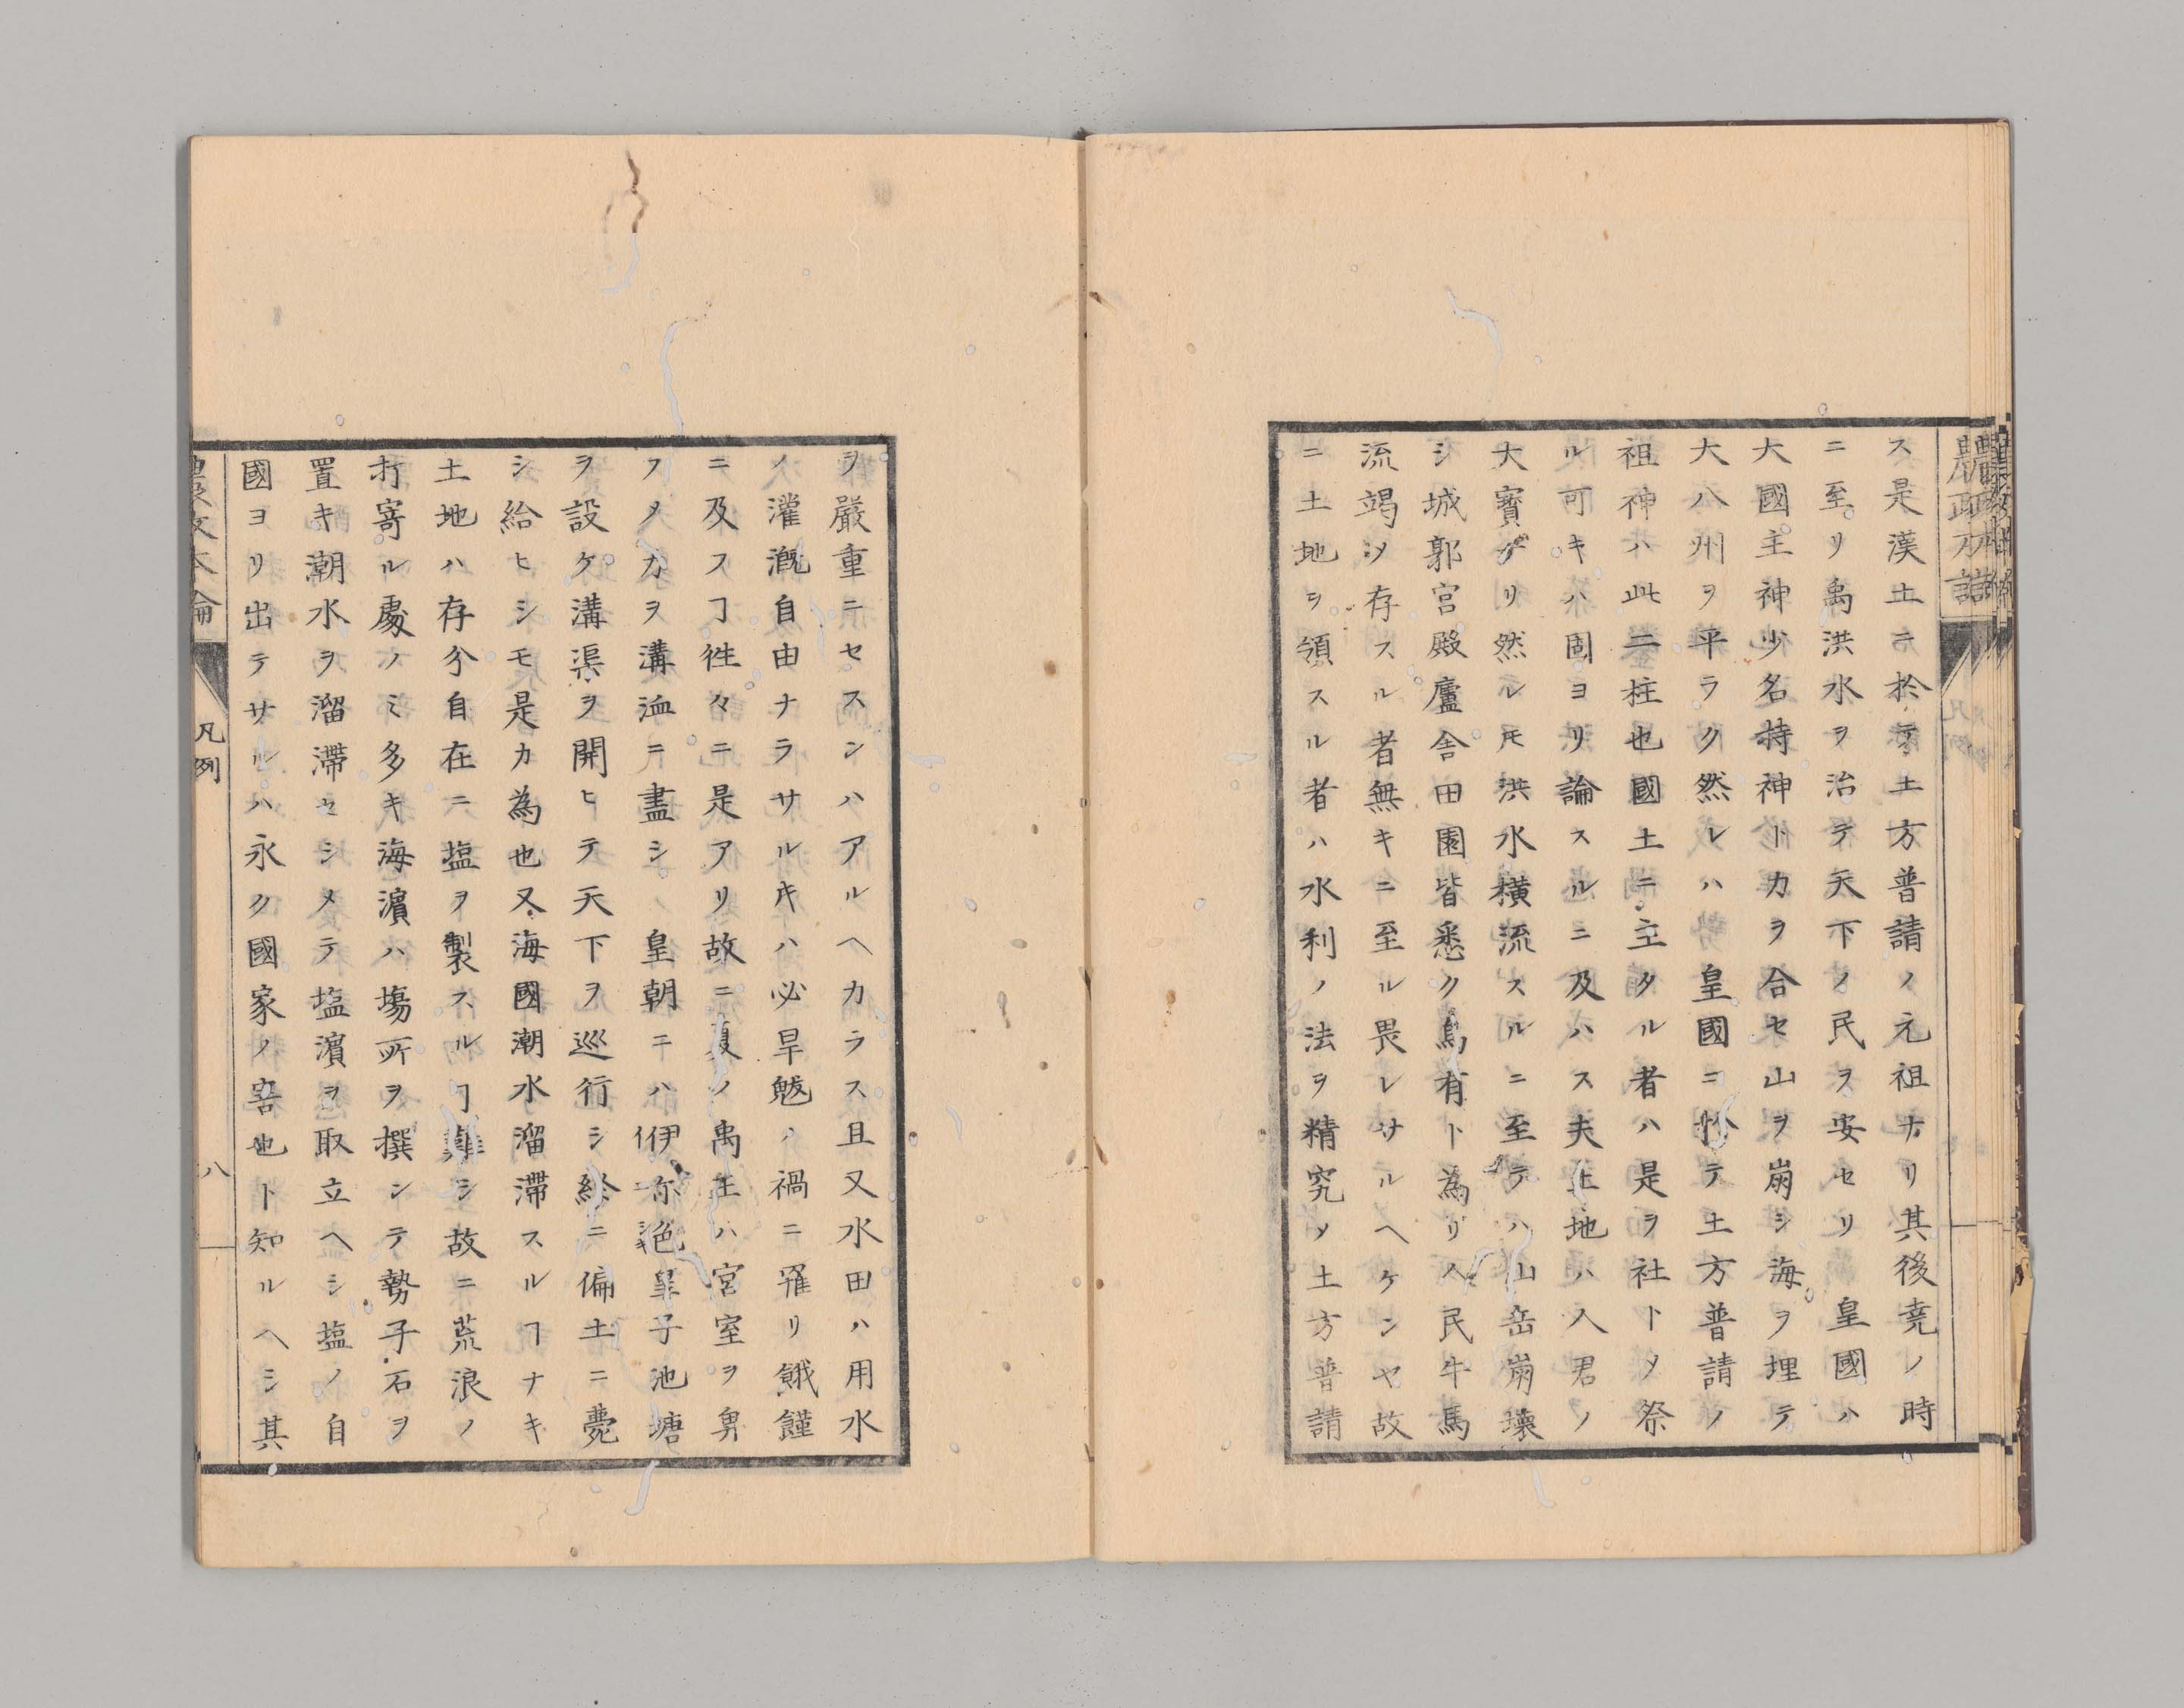 ス是漢土ニ於テ土方普請ノ元祖ナリ其後堯ノ時
ニ至リ禹洪水ヲ治テ天下ノ民ヲ安セリ皇國ハ
大國主神少名持神ト力ヲ合セ山ヲ崩シ海ヲ埋テ
大八州ヲ平ラク然レハ皇國ニ於テ土方普請ノ
祖神ハ此二柱也國土ニ立タル者ハ是ヲ社トメ祭
ル可キハ固ヨリ論スルニ及ハス夫土地ハ人君ノ
大寳ナリ然レ𪜈洪水横流スルニ至テハ山岳崩壞
シ城郭宮殿廬舍田園皆悉ク烏有ト為リ人民牛馬
流竭ソ存スル者無キニ至ル畏レサルヘケンヤ故
ニ土地ヲ領スル者ハ水利ノ法ヲ精究メ土方普請
ヲ嚴重ニセスンハアルヘカラス且又水田ハ用水
ノ灌漑自由ナラサル𬼀ハ必旱魃ノ禍ニ罹リ餓饉
ニ及スヿ徃々ニ是アリ故ニ夏ノ禹王ハ宮室ヲ男
フメカヲ溝洫ニ盡シ皇朝ニハ伊弥色皇子池塘
ヲ設ケ溝渠ヲ開ヒテ天下ヲ巡行シ給ニ偏土ニ薨
シ給ヒシモ是カ為也又海國潮水溜滞スルヿナキ
土地ハ存分自在ニ塩ヲ製スルヿ難シ故ニ荒浪ノ
打寄ル處ノミ多キ海濵ハ塲所ヲ撰ンテ勢子石ヲ
置キ潮水ヲ溜滞セシメテ塩濵ヲ取立ヘシ塩ノ自
國ヨリ出テサルハ永ク國家ノ害也ト知ルヘシ其
凡例
八